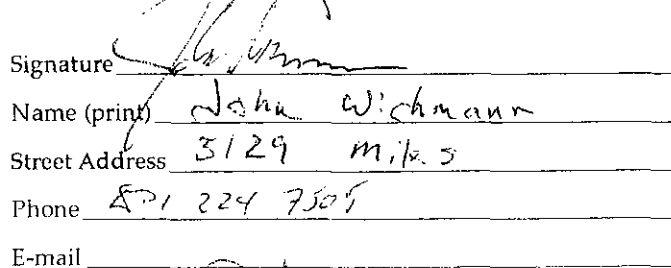 Signature
Name (print) John Wichmann
Street Address 3129 Miles
Phone 224
E-mail